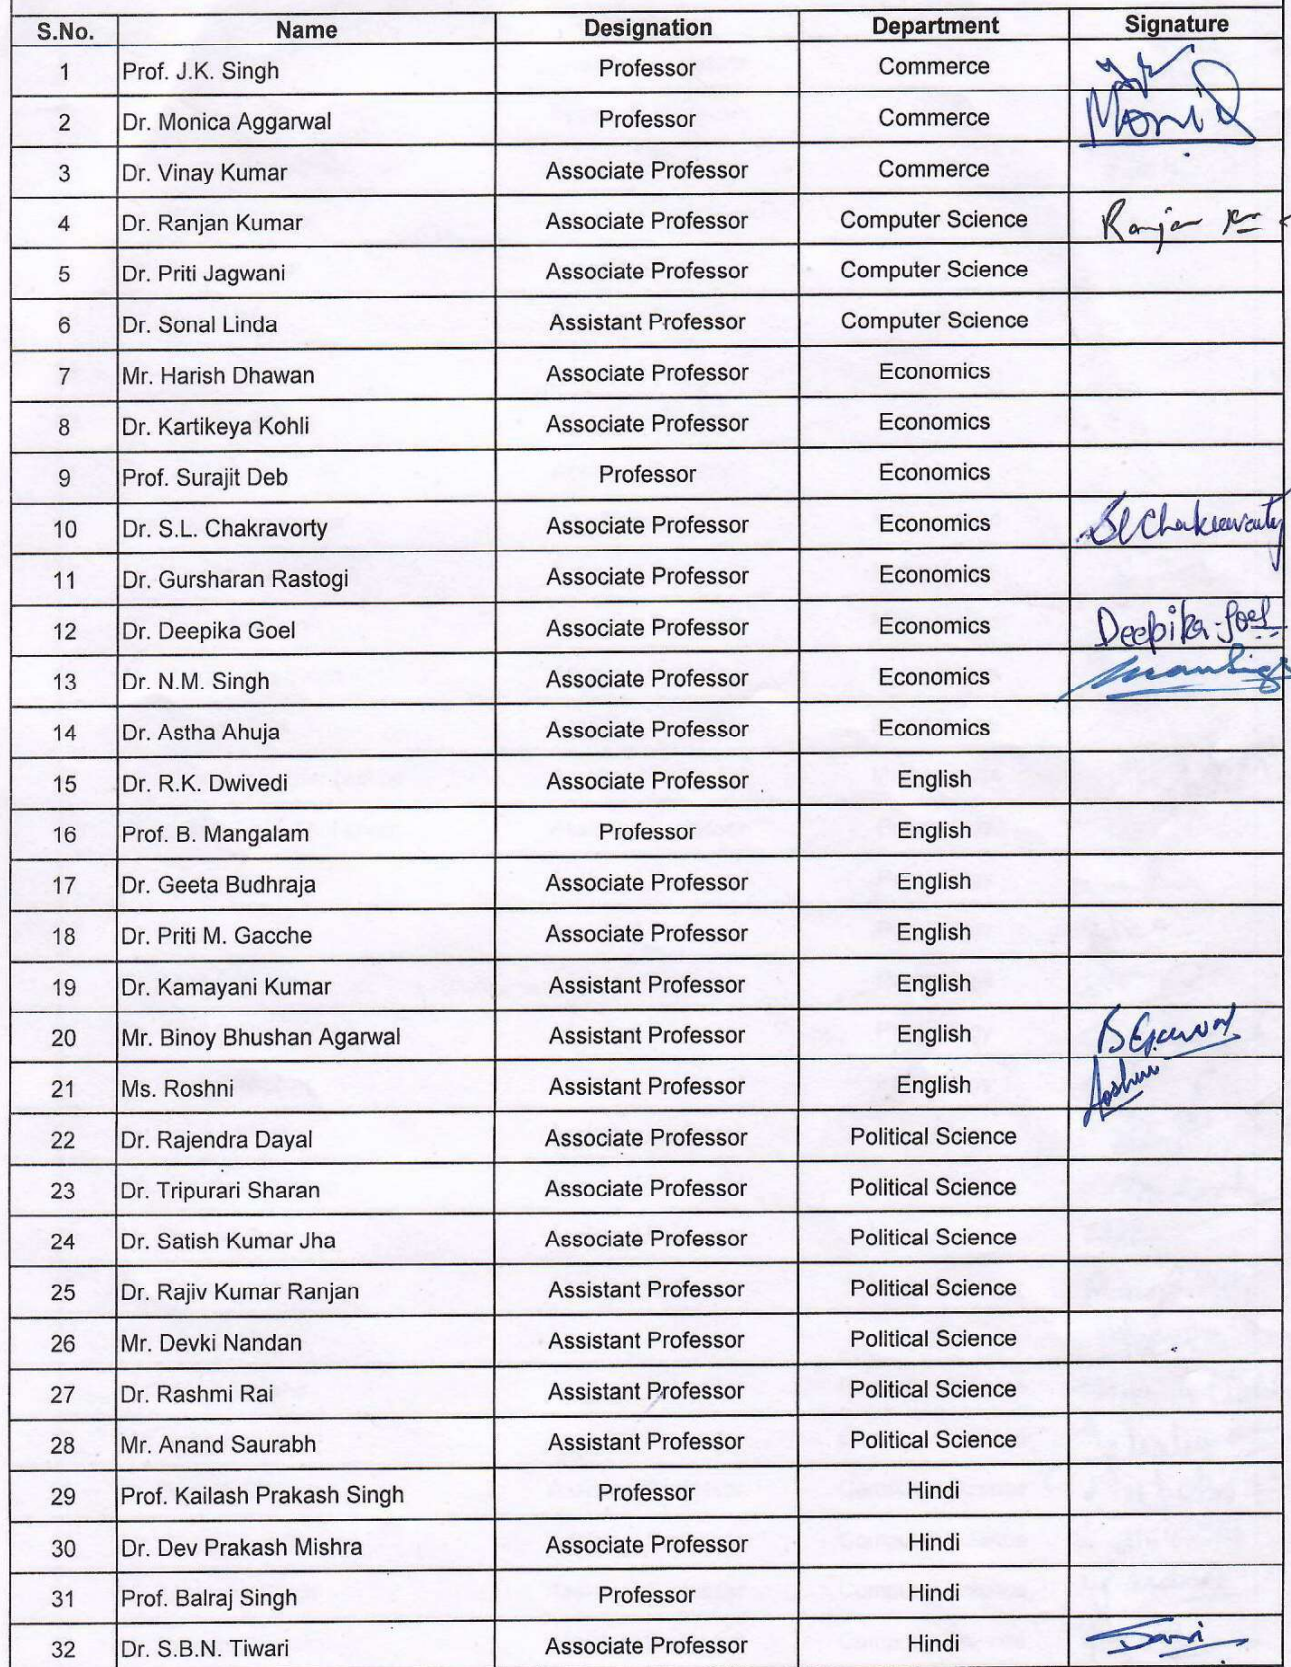 S.No. Name Designation Department Signature
1 Prof. J.K. Singh Professor Commerce
2 Dr. Monica Aggarwal Professor Commerce
3 Dr. Vinay Kumar Associate Professor Commerce
4 Dr. Ranjan Kumar Associate Professor Computer Science Ranjan Kr
5 Dr. Priti Jagwani Associate Professor Computer Science
6 Dr. Sonal Linda Assistant Professor Computer Science
7 Mr. Harish Dhawan Associate Professor Economics
8 Dr. Kartikeya Kohli Associate Professor Economics
9 Prof. Surajit Deb Professor Economics
10 Dr. S.L. Chakravorty Associate Professor Economics
11 Dr. Gursharan Rastogi Associate Professor Economics
12 Dr. Deepika Goel Associate Professor Economics Deepika Goel
13 Dr. N.M. Singh Associate Professor Economics
14 Dr. Astha Ahuja Associate Professor Economics
15 Dr. R.K. Dwivedi Associate Professor English
16 Prof. B. Mangalam Professor English
17 Dr. Geeta Budhraja Associate Professor English
18 Dr. Priti M. Gacche Associate Professor English
19 Dr. Kamayani Kumar Assistant Professor English
20 Mr. Binoy Bhushan Agarwal Assistant Professor English
21 Ms. Roshni Assistant Professor English
22 Dr. Rajendra Dayal Associate Professor Political Science
23 Dr. Tripurari Sharan Associate Professor Political Science
24 Dr. Satish Kumar Jha Associate Professor Political Science
25 Dr. Rajiv Kumar Ranjan Assistant Professor Political Science
26 Mr. Devki Nandan Assistant Professor Political Science
27 Dr. Rashmi Rai Assistant Professor Political Science
28 Mr. Anand Saurabh Assistant Professor Political Science
29 Prof. Kailash Prakash Singh Professor Hindi
30 Dr. Dev Prakash Mishra Associate Professor Hindi
31 Prof. Balraj Singh Professor Hindi
32 Dr. S.B.N. Tiwari Associate Professor Hindi